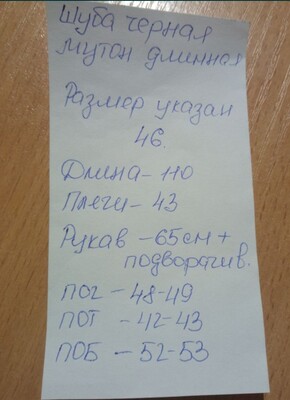 Шуба черная
мутон длинная
Размер указан
46.
Длина - 110
Плечи - 43
Рукав - 65см +
подворачив.
ПОГ - 48-49
ПОТ - 42-43
ПОБ - 52-53